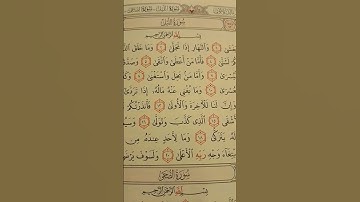 سُورَةُ اللَّيْلِ
بِسْمِ اللَّهِ الرَّحْمَٰنِ الرَّحِيمِ
يَغْشَىٰ ١ وَالنَّهَارِ إِذَا تَجَلَّىٰ ٢ وَمَا خَلَقَ
لَشَتَّىٰ ٤ فَأَمَّا مَنْ أَعْطَىٰ وَاتَّقَىٰ ٥
لِلْيُسْرَىٰ ٧ وَأَمَّا مَنْ بَخِلَ وَاسْتَغْنَىٰ ٨
لِلْعُسْرَىٰ ١٠ وَمَا يُغْنِي عَنْهُ مَالُهُ إِذَا تَرَدَّىٰ
وَإِنَّ لَنَا لَلْآخِرَةَ وَالْأُولَىٰ ١٣ فَأَنْذَرْتُكُمْ
الْأَشْقَى ١٥ الَّذِي كَذَّبَ وَتَوَلَّىٰ ١٦
يَتَزَكَّىٰ ١٨ وَمَا لِأَحَدٍ عِنْدَهُ مِنْ
ابْتِغَاءَ وَجْهِ رَبِّهِ الْأَعْلَىٰ ٢٠ وَلَسَوْفَ يَرْضَىٰ
سُورَةُ الضُّحَىٰ
بِسْمِ اللَّهِ الرَّحْمَٰنِ الرَّحِيمِ